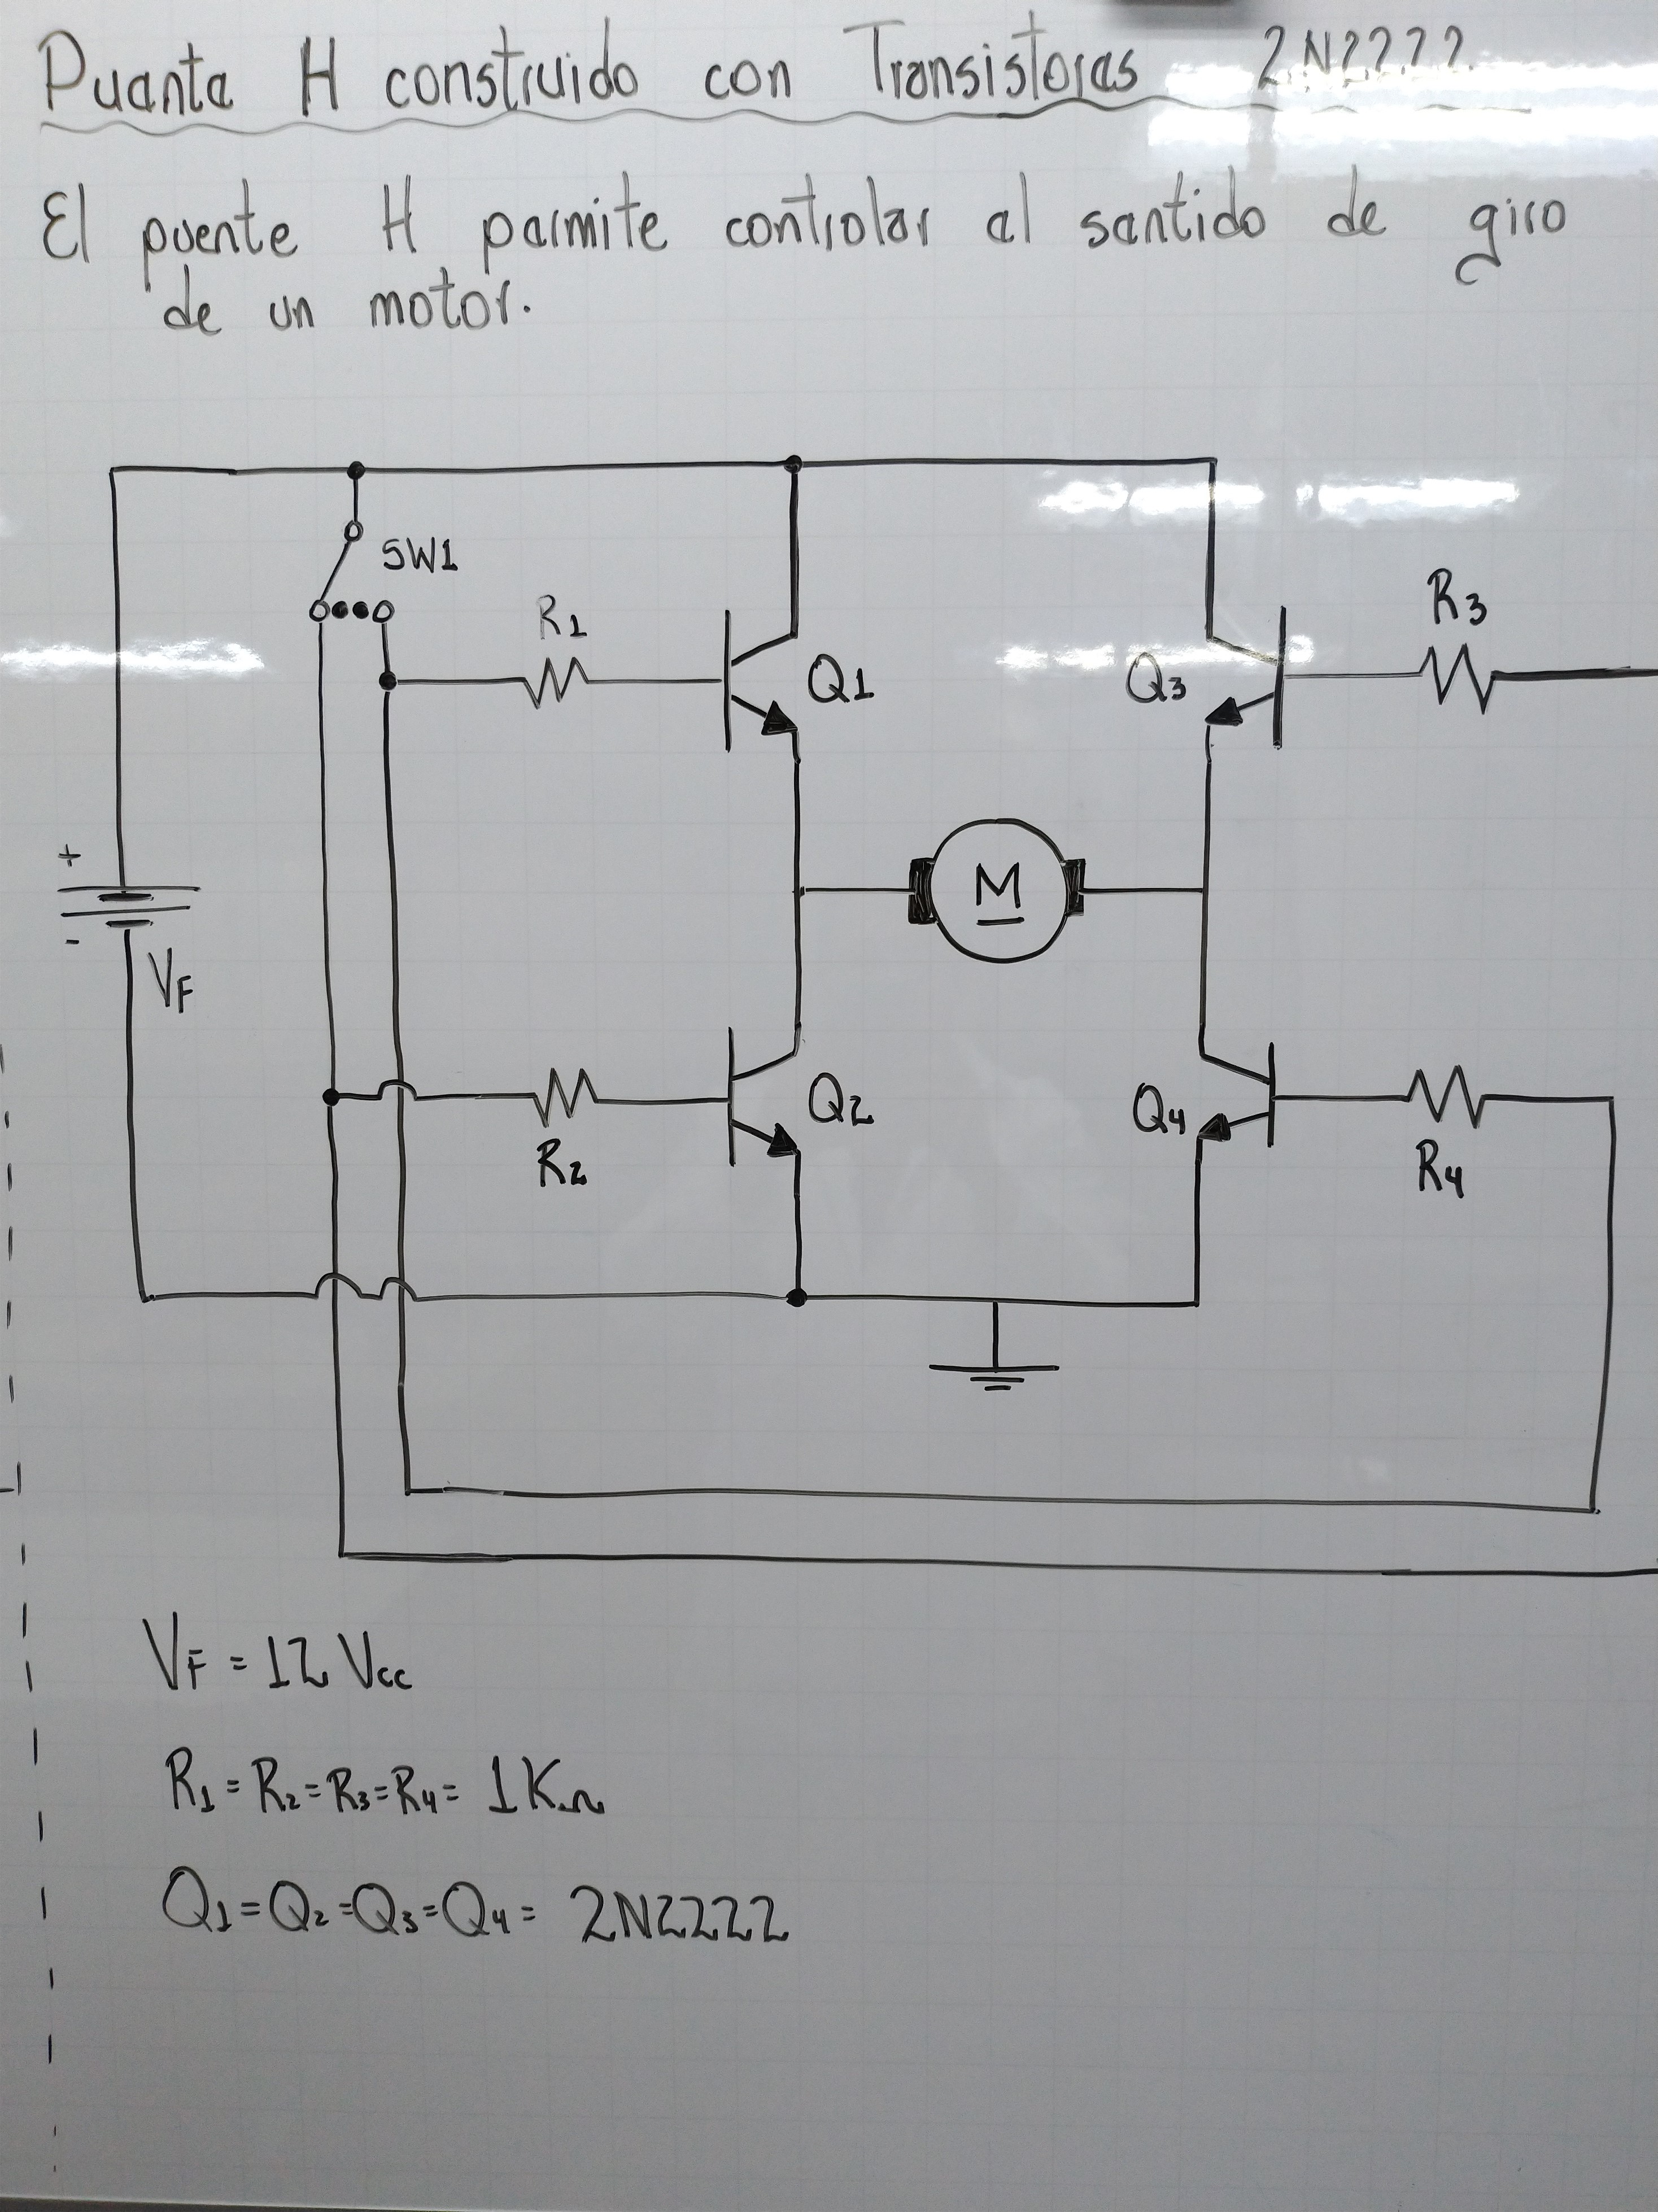 Puente H construido con Transistores 2N2222
El puente H permite controlar el sentido de giro
de un motor.
SW1
R1
R3
Q1
Q3
+
M
-
VF
Q2
Q4
R2
R4
VF = 12 Vcc
R1 = R2 = R3 = R4 = 1KΩ
Q1 = Q2 = Q3 = Q4 = 2N2222